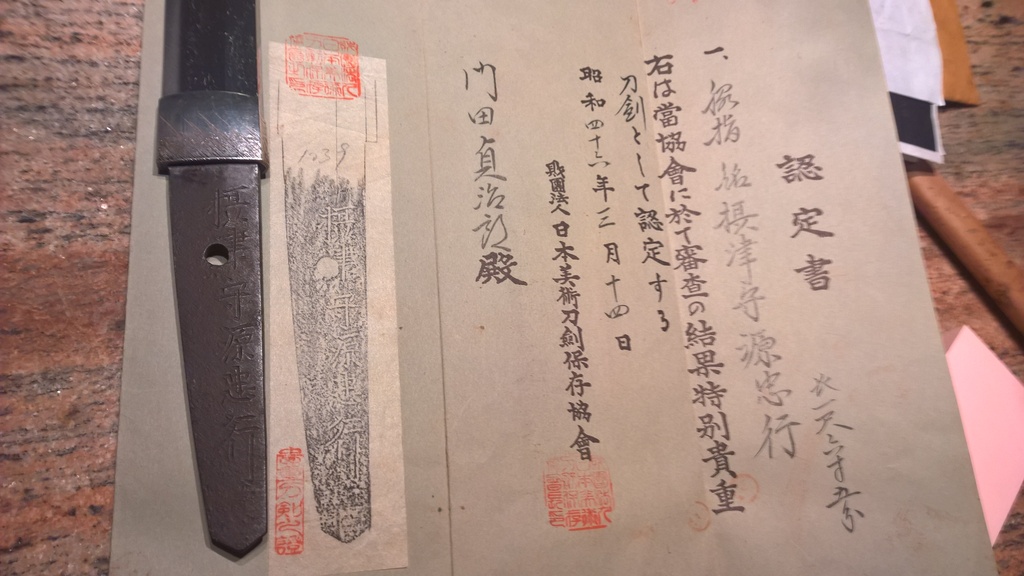 認定書
一、脇指 銘 摂津守源忠行
長一尺六寸
右は當協會に於て審査の結果特別貴重
刀劍として認定する
昭和四十六年三月十四日
財團法人日本美術刀劍保存協會
門田貞治郎殿
1039
摂津守源忠行
摂津守源忠行